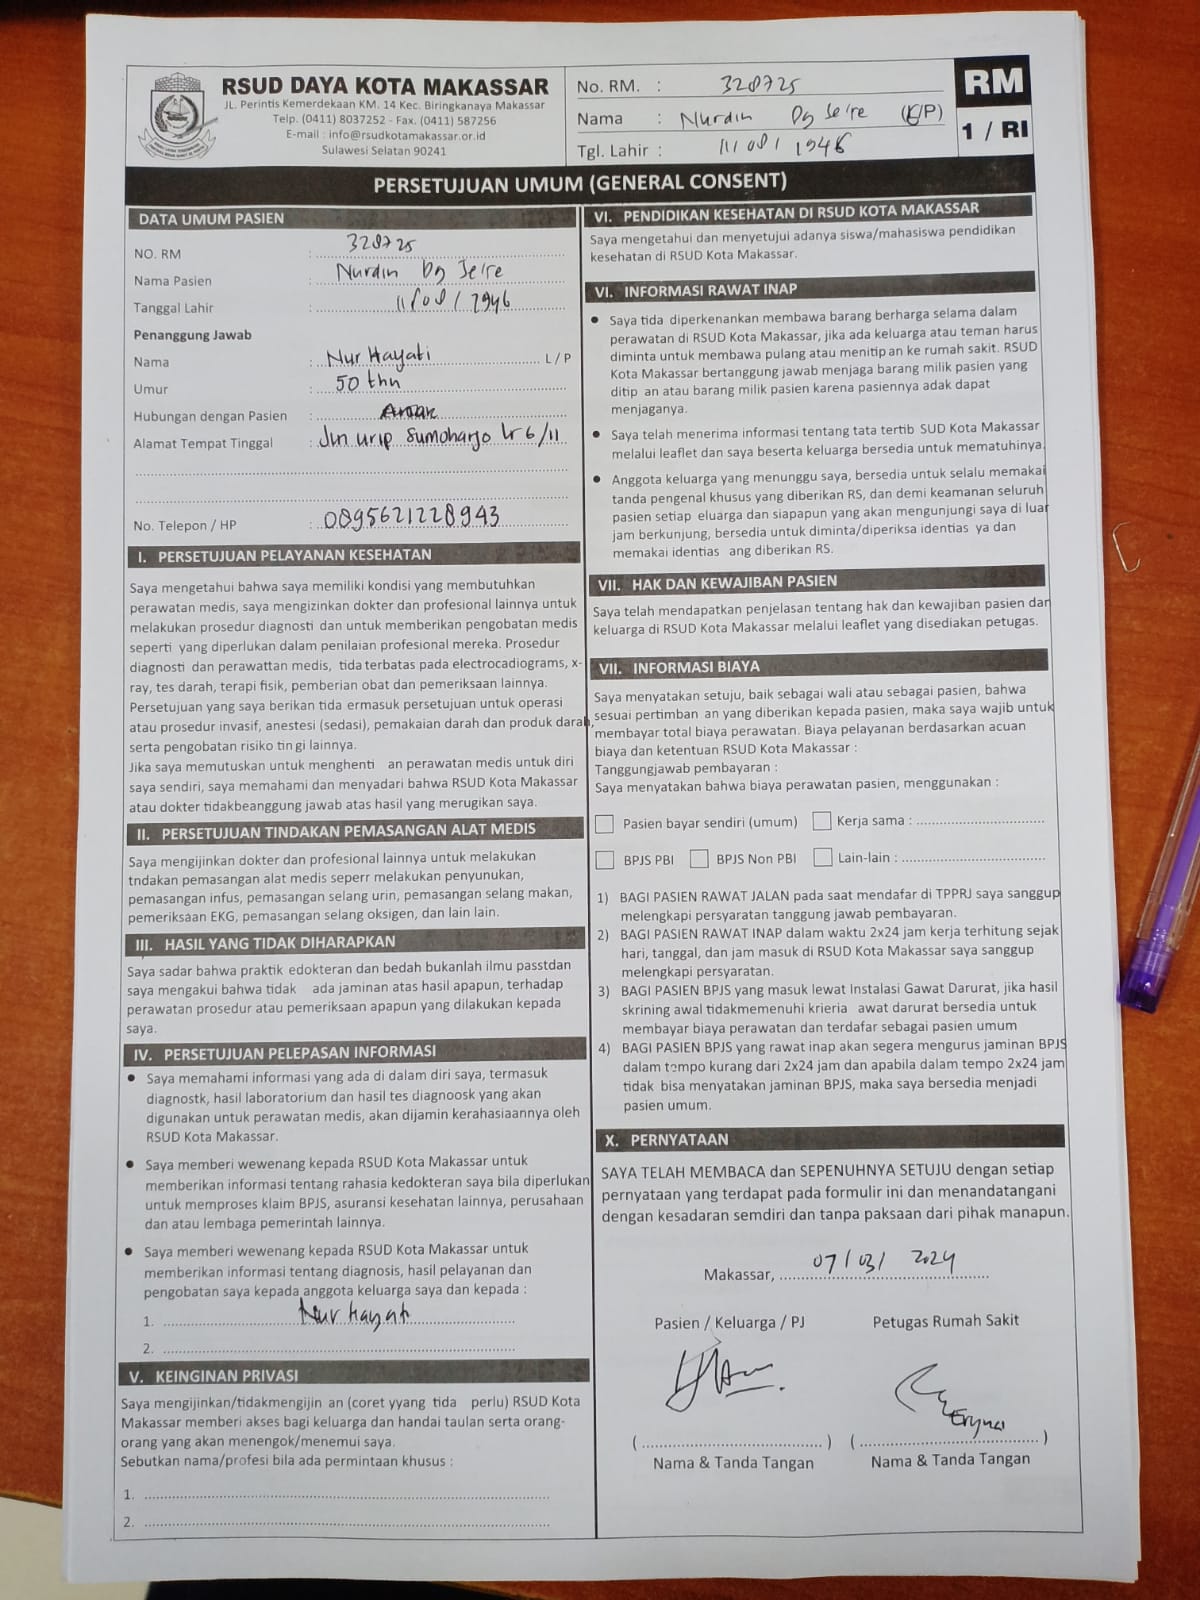 RSUD DAYA KOTA MAKASSAR
JL. Perintis Kemerdekaan KM. 14 Kec. Biringkanaya Makassar
Telp. (0411) 8037252 - Fax. (0411) 587256
E-mail : info@rsudkotamakassar.or.id
Sulawesi Selatan 90241
No. RM. : 328725
Nama : Nurdin Dg Se're (L/P)
Tgl. Lahir : 11/08/1946
RM
1 / RI
PERSETUJUAN UMUM (GENERAL CONSENT)
DATA UMUM PASIEN
NO. RM : 328725
Nama Pasien : Nurdin Dg Se're
Tanggal Lahir : 11/08/1946
Penanggung Jawab
Nama : Nur Hayati L / P
Umur : 50 thn
Hubungan dengan Pasien : Anak
Alamat Tempat Tinggal : Jln urip Sumoharjo Lr 6/11
No. Telepon / HP : 0895621228943
I. PERSETUJUAN PELAYANAN KESEHATAN
Saya mengetahui bahwa saya memiliki kondisi yang membutuhkan
perawatan medis, saya mengizinkan dokter dan profesional lainnya untuk
melakukan prosedur diagnosti dan untuk memberikan pengobatan medis
seperti yang diperlukan dalam penilaian profesional mereka. Prosedur
diagnosti dan perawattan medis, tida terbatas pada electrocadiograms, x-
ray, tes darah, terapi fisik, pemberian obat dan pemeriksaan lainnya.
Persetujuan yang saya berikan tida ermasuk persetujuan untuk operasi
atau prosedur invasif, anestesi (sedasi), pemakaian darah dan produk darah,
serta pengobatan risiko tin gi lainnya.
Jika saya memutuskan untuk menghenti an perawatan medis untuk diri
saya sendiri, saya memahami dan menyadari bahwa RSUD Kota Makassar
atau dokter tidakbeanggung jawab atas hasil yang merugikan saya.
II. PERSETUJUAN TINDAKAN PEMASANGAN ALAT MEDIS
Saya mengijinkan dokter dan profesional lainnya untuk melakukan
tndakan pemasangan alat medis seperr melakukan penyunukan,
pemasangan infus, pemasangan selang urin, pemasangan selang makan,
pemeriksaan EKG, pemasangan selang oksigen, dan lain lain.
III. HASIL YANG TIDAK DIHARAPKAN
Saya sadar bahwa praktik edokteran dan bedah bukanlah ilmu passtdan
saya mengakui bahwa tidak ada jaminan atas hasil apapun, terhadap
perawatan prosedur atau pemeriksaan apapun yang dilakukan kepada
saya.
IV. PERSETUJUAN PELEPASAN INFORMASI
• Saya memahami informasi yang ada di dalam diri saya, termasuk
diagnostk, hasil laboratorium dan hasil tes diagnoosk yang akan
digunakan untuk perawatan medis, akan dijamin kerahasiaannya oleh
RSUD Kota Makassar.
• Saya memberi wewenang kepada RSUD Kota Makassar untuk
memberikan informasi tentang rahasia kedokteran saya bila diperlukan
untuk memproses klaim BPJS, asuransi kesehatan lainnya, perusahaan
dan atau lembaga pemerintah lainnya.
• Saya memberi wewenang kepada RSUD Kota Makassar untuk
memberikan informasi tentang diagnosis, hasil pelayanan dan
pengobatan saya kepada anggota keluarga saya dan kepada :
1. Nur hayati
2.
V. KEINGINAN PRIVASI
Saya mengijinkan/tidakmengijin an (coret yyang tida perlu) RSUD Kota
Makassar memberi akses bagi keluarga dan handai taulan serta orang-
orang yang akan menengok/menemui saya.
Sebutkan nama/profesi bila ada permintaan khusus :
1.
2.
VI. PENDIDIKAN KESEHATAN DI RSUD KOTA MAKASSAR
Saya mengetahui dan menyetujui adanya siswa/mahasiswa pendidikan
kesehatan di RSUD Kota Makassar.
VI. INFORMASI RAWAT INAP
• Saya tida diperkenankan membawa barang berharga selama dalam
perawatan di RSUD Kota Makassar, jika ada keluarga atau teman harus
diminta untuk membawa pulang atau menitip an ke rumah sakit. RSUD
Kota Makassar bertanggung jawab menjaga barang milik pasien yang
ditip an atau barang milik pasien karena pasiennya adak dapat
menjaganya.
• Saya telah menerima informasi tentang tata tertib SUD Kota Makassar
melalui leaflet dan saya beserta keluarga bersedia untuk mematuhinya
• Anggota keluarga yang menunggu saya, bersedia untuk selalu memakai
tanda pengenal khusus yang diberikan RS, dan demi keamanan seluruh
pasien setiap eluarga dan siapapun yang akan mengunjungi saya di luar
jam berkunjung, bersedia untuk diminta/diperiksa identias ya dan
memakai identias ang diberikan RS.
VII. HAK DAN KEWAJIBAN PASIEN
Saya telah mendapatkan penjelasan tentang hak dan kewajiban pasien dan
keluarga di RSUD Kota Makassar melalui leaflet yang disediakan petugas.
VII. INFORMASI BIAYA
Saya menyatakan setuju, baik sebagai wali atau sebagai pasien, bahwa
sesuai pertimban an yang diberikan kepada pasien, maka saya wajib untuk
membayar total biaya perawatan. Biaya pelayanan berdasarkan acuan
biaya dan ketentuan RSUD Kota Makassar :
Tanggungjawab pembayaran :
Saya menyatakan bahwa biaya perawatan pasien, menggunakan :
Pasien bayar sendiri (umum) Kerja sama :
BPJS PBI BPJS Non PBI Lain-lain :
1) BAGI PASIEN RAWAT JALAN pada saat mendafar di TPPRJ saya sanggup
melengkapi persyaratan tanggung jawab pembayaran.
2) BAGI PASIEN RAWAT INAP dalam waktu 2x24 jam kerja terhitung sejak
hari, tanggal, dan jam masuk di RSUD Kota Makassar saya sanggup
melengkapi persyaratan.
3) BAGI PASIEN BPJS yang masuk lewat Instalasi Gawat Darurat, jika hasil
skrining awal tidakmemenuhi krieria awat darurat bersedia untuk
membayar biaya perawatan dan terdafar sebagai pasien umum
4) BAGI PASIEN BPJS yang rawat inap akan segera mengurus jaminan BPJS
dalam tempo kurang dari 2x24 jam dan apabila dalam tempo 2x24 jam
tidak bisa menyatakan jaminan BPJS, maka saya bersedia menjadi
pasien umum.
X. PERNYATAAN
SAYA TELAH MEMBACA dan SEPENUHNYA SETUJU dengan setiap
pernyataan yang terdapat pada formulir ini dan menandatangani
dengan kesadaran semdiri dan tanpa paksaan dari pihak manapun.
Makassar, 07/03/ 2024
Pasien / Keluarga / PJ Petugas Rumah Sakit
( ) ( )
Nama & Tanda Tangan Nama & Tanda Tangan